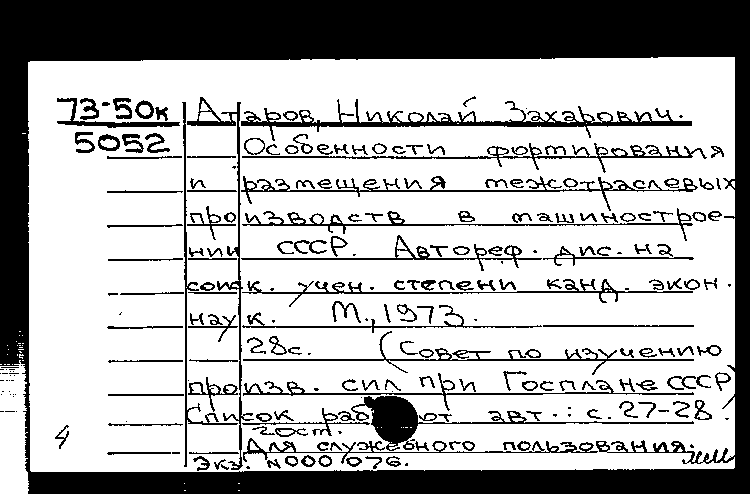 73-50к Атаров, Николай Захарович.
5052 Особенности формирования
и размещения межотраслевых
производств в машинострое-
нии СССР. Автореф. дис. на
соиск. учен. степени канд. экон.
наук. М., 1973.
28с. (Совет по изучению
произв. сил при Госплане СССР)
Список работ авт.: с. 27-28.
4
Для служебного пользования.
Экз. N000076.